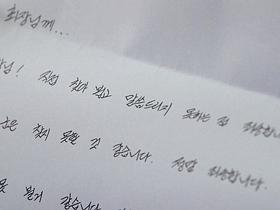 회장님께...
님! 직접 찾아 뵙고 말씀드리지 못하는 점 죄송합니다.
은 찾지 못할 것 같습니다. 정말 죄송합니다.
못 뵐거 같습니